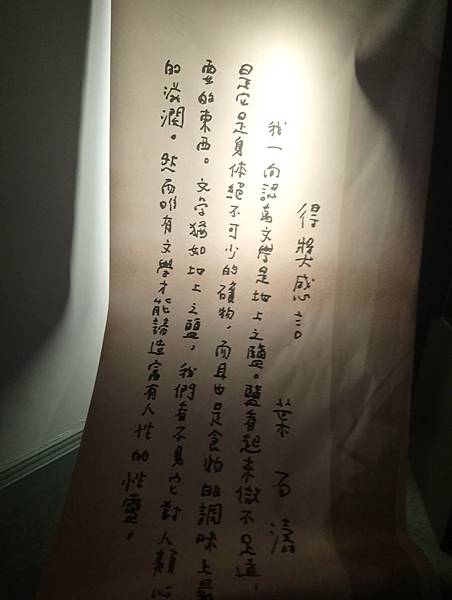 得獎感言
葉石濤
我一向認為文學是地上之鹽。鹽看起來微不足道,
是它是身体絕不可少的礦物,而且也是食物的調味上最
要的東西。文学猶如地上之鹽,我們看不見它對人類心
的滋潤。然而唯有文學才能造富有人性的性靈。